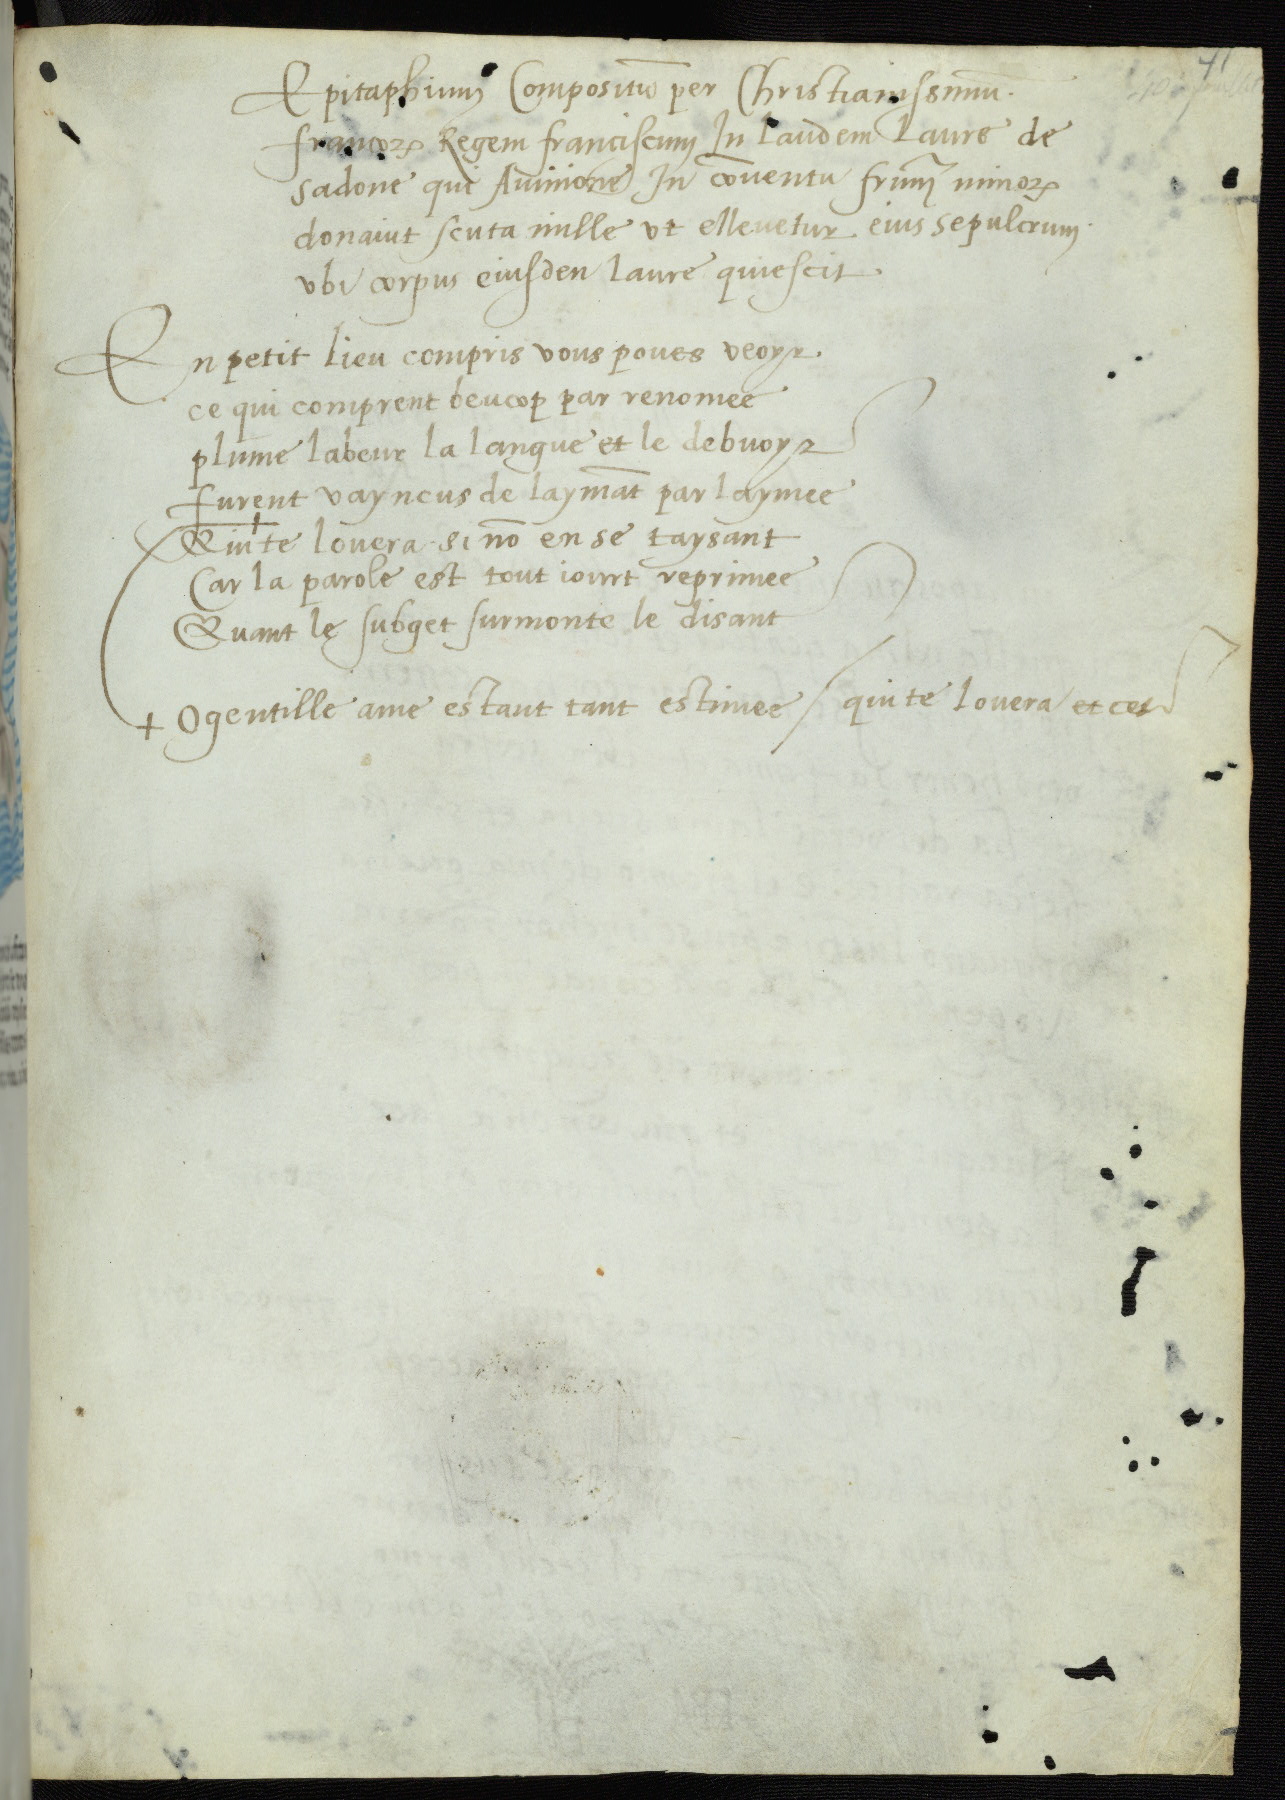 41
Epitaphium Compositū per Christianissimū.
francoꝝ Regem franciscum In laudem Laure de
sadone qui Avinione In cōventu frum̄ minoꝝ
donaivt scuta mille vt ellevetur eius sepulcrum.
vbi corpus eiusden laure quiescit.
En petit lieu compris vous poves veoyr.
ce qui comprent beucop par renomee
plume labeur la langue et le debuoyr
furent vayncus de laymāt par laymee
Qui te lovera si nō en se taysant
Car la parole est tout iourt reprimee
Quant le subget surmonte le disant
+ O gentille ame estant tant estimee / qui te lovera et cet